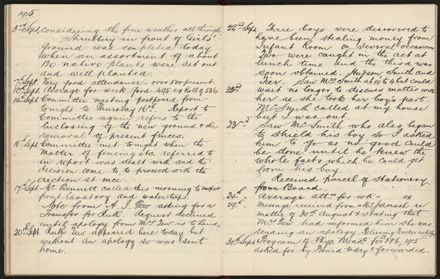 1915
3rd Sept. Considering the fine weather all through
Shrubbery in front of Girls'
Ground was completed today
when an assortment of about
170 native plants were set out
and well planted.
7th Sept. Very good attendance — over 500 present.
10th Sept. Average for week good 495 ex Roll of 536
14th Sept. Committee meeting postponed from
tonight to Thursday 16th. Report to
Committee again refers to the
enclosing of the new ground &
removal of present fences.
16 Sept. Committee met tonight when the
matter of fencing etc referred to
in report was dealt with and the
decision come to to proceed with the
erection at once.
17 Sept. Mr Bennett called this morning to inspect
front lavatory and water taps.
Note from A. J. Tew asking for a
Transfer for Dulk. Request declined
until apology from Mrs Tew is to hand.
20th Sept. Dulk Tew appeared here today but
without an apology so was sent
home.
22nd Sept. Three boys were discovered to
have been stealing money from
Infant Room on several occasions
Two were caught in the act at
lunch time and the third was
soon obtained. Hudson, Smith and
Tier. Saw Mrs Smith at 12 but could
wait no longer to discuss matter with
her as she took her boy's part.
Mr Smith called at my house
but I was out.
23rd Saw Mr Smith who also began
to shield his boy so I asked
him to go as no good could
be done until he knew the
whole facts which he could get
from his boy.
Received parcel of Stationery
from Board.
24th Average attce for wk —
29th Message received from
matter of 30th August & stating that
Mrs Tew had informed him she was
sending an apology.
30th Sept. Programme of Phys.
asked for by Board today & forwarded.